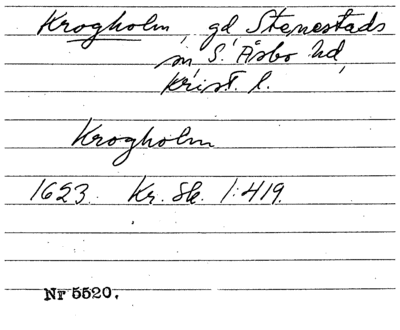 Krogholm, gd Stenestads
sn, S. Åsbo hd,
Krist. l.
Krogholm
1623. Kr. Sk. 1:419.
Nr 5520.